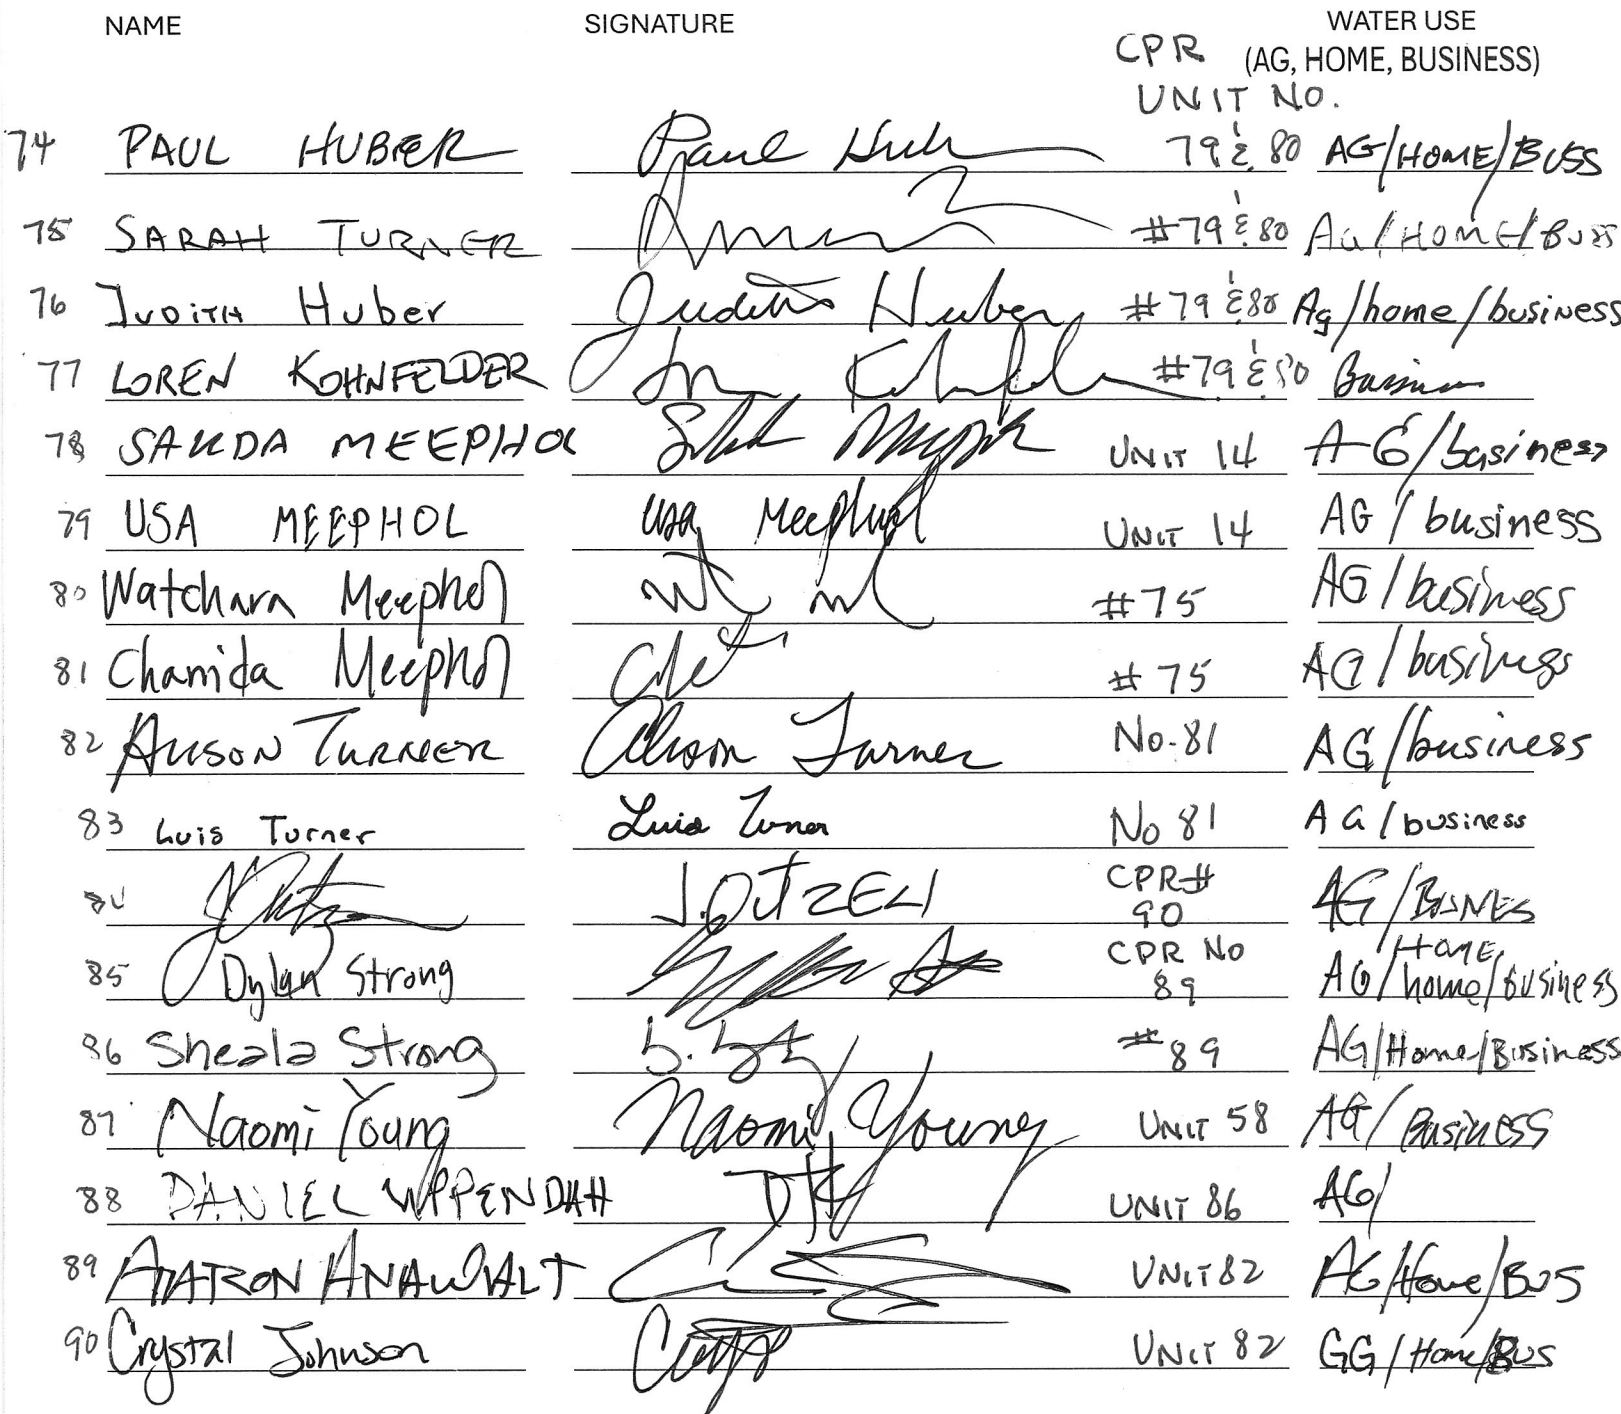 NAME SIGNATURE CPR UNIT NO. WATER USE
(AG, HOME, BUSINESS)
74 PAUL HUBER Paul Hub 79 & 80 AG/HOME/BUSS
75 SARAH TURNER #79 & 80 AG/HOME/BUSS
76 JUDITH Huber Judith Huber #79 & 80 Ag/home/business
77 LOREN KOHNFELDER #79 & 80 Business
78 SAKDA MEEPHOL UNIT 14 AG/business
79 USA MEEPHOL Usa Meephol UNIT 14 AG/business
80 Watchara Meephol #75 AG/business
81 Chamida Meephol #75 AG/business
82 ALISON TURNER Alison Turner No. 81 AG/business
83 Luis Turner Luis Turner No 81 AG/business
84 J. DITZELI CPR# 90 AG/BISNES HOME
85 Dylan Strong CPR NO 89 AG/home/business
86 Sheala Strong #89 AG/Home/Business
87 Naomi Young Naomi Young UNIT 58 AG/Business
88 DANIEL UNIT 86 AG/
89 AARON ANAWALT UNIT 82 AG/Home/BUS
90 Crystal Johnson UNIT 82 GG/Home/BUS